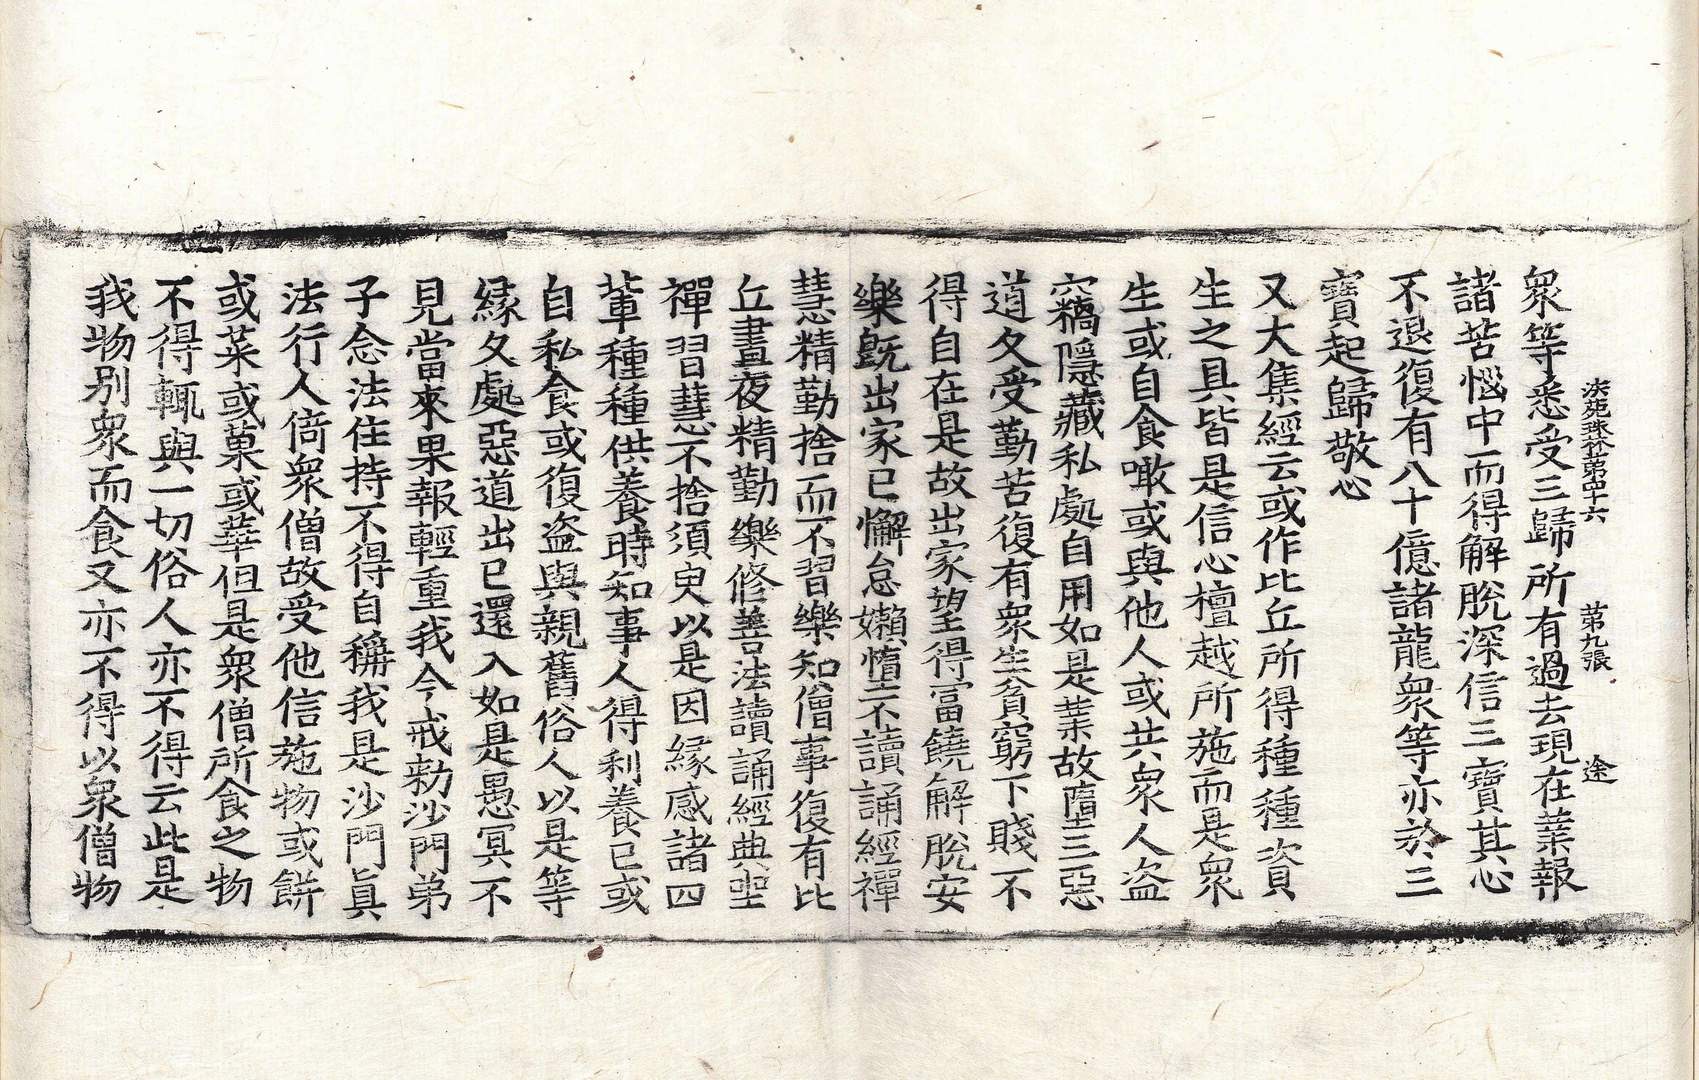 法苑珠林第四十六　第九張　途
衆等悉受三歸所有過去現在業報
諸苦惱中而得解脫深信三寶其心
不退復有八十億諸龍衆等亦於三
寶起歸敬心
又大集經云或作比丘所得種種資
生之具皆是信心檀越所施而是衆
生或自食噉或與他人或共衆人盜
竊隱藏私處自用如是業故墮三惡
道久受勤苦復有衆生貧窮下賤不
得自在是故出家望得富饒解脫安
樂旣出家已懈怠嬾惰不讀誦經禪
慧精勤捨而不習樂知僧事復有比
丘晝夜精勤樂修善法讀誦經典坐
禪習慧不捨須臾以是因緣感諸四
輩種種供養時知事人得利養已或
自私食或復盜與親舊俗人以是等
緣久處惡道出已還入如是愚冥不
見當來果報輕重我今戒勑沙門弟
子念法住持不得自稱我是沙門眞
法行人倚衆僧故受他信施物或餅
或菜或菓或華但是衆僧所食之物
不得輒與一切俗人亦不得云此是
我物别衆而食又亦不得以衆僧物